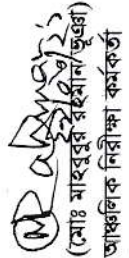 (মোঃ মাহবুবুর রহমান ভূঞা)
আঞ্চলিক নিরীক্ষা কর্মকর্তা